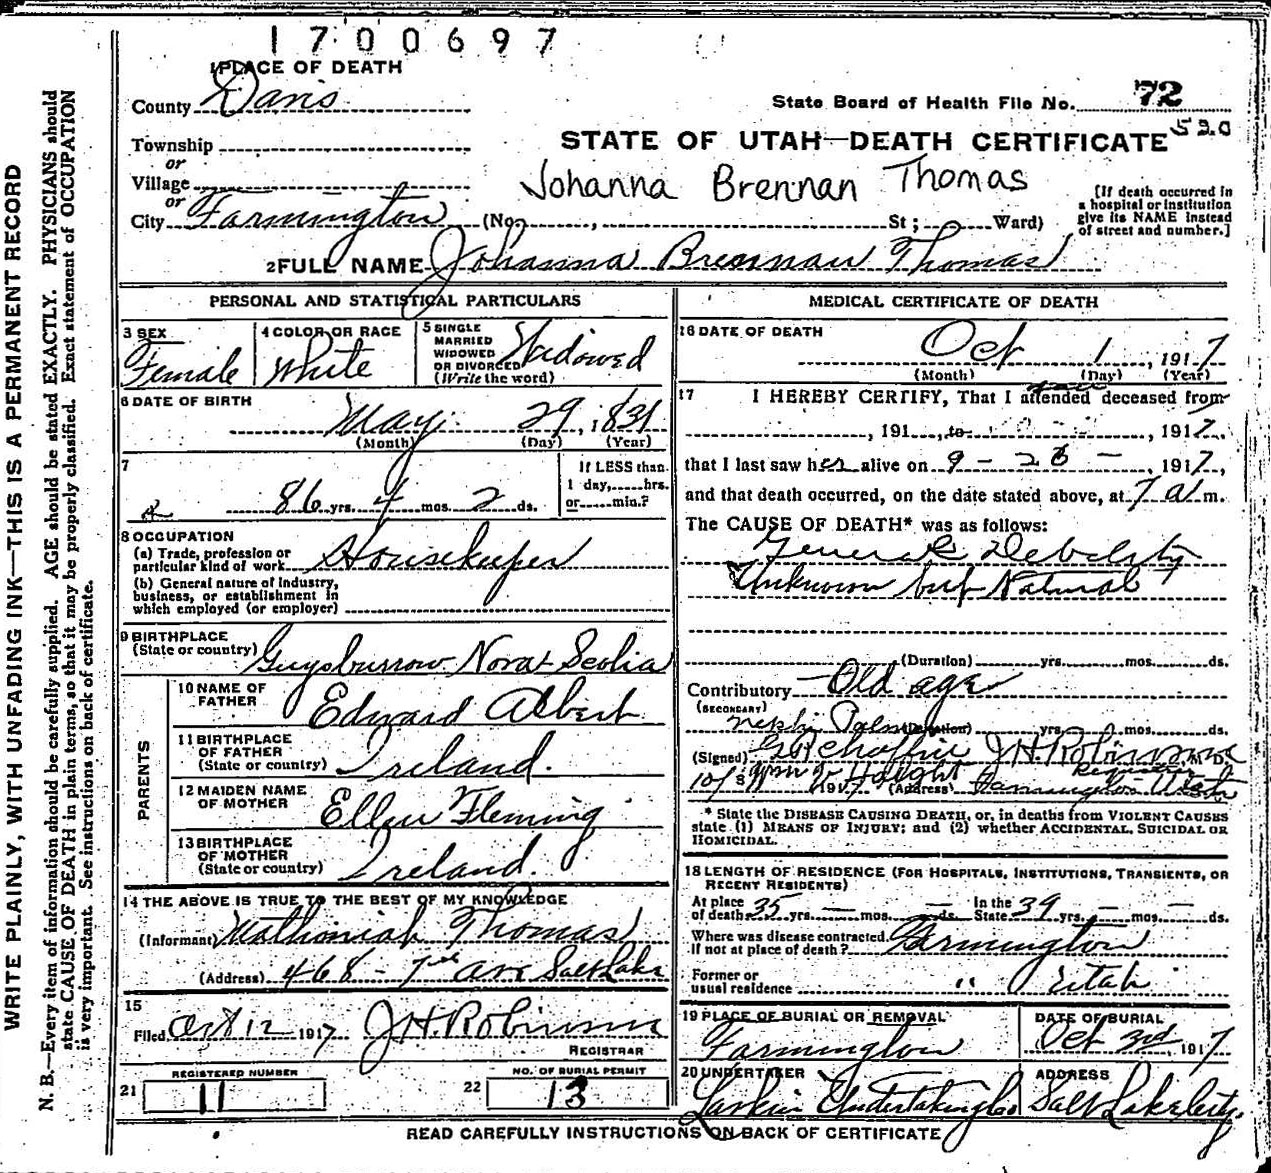 1700697
1 PLACE OF DEATH
County Davis
State Board of Health File No. 72
530
Township
or
Village
or
STATE OF UTAH—DEATH CERTIFICATE
Johanna Brennan Thomas
City Farmington (No. , St; Ward)
[If death occurred in
a hospital or institution
give its NAME instead
of street and number.]
2 FULL NAME Johanna Brennan Thomas
PERSONAL AND STATISTICAL PARTICULARS
3 SEX
Female
4 COLOR OR RACE
White
5 SINGLE
MARRIED
WIDOWED
OR DIVORCED
(Write the word)
Widowed
6 DATE OF BIRTH
May 29, 1831
(Month) (Day) (Year)
7
86 yrs. 4 mos. 2 ds.
If LESS than
1 day, hrs.
or min.?
8 OCCUPATION
(a) Trade, profession or
particular kind of work Housekeeper
(b) General nature of industry,
business, or establishment in
which employed (or employer)
9 BIRTHPLACE
(State or country) Guysburrow Nova Scotia
PARENTS
10 NAME OF
FATHER Edward Albert
11 BIRTHPLACE
OF FATHER
(State or country) Ireland.
12 MAIDEN NAME
OF MOTHER Ellen Fleming
13 BIRTHPLACE
OF MOTHER
(State or country) Ireland.
14 THE ABOVE IS TRUE TO THE BEST OF MY KNOWLEDGE
(Informant) Mathoniah Thomas
(Address) 468 - 7th Ave Salt Lake
15
Filed Oct 12 1917 J H Robinson
REGISTRAR
21
REGISTERED NUMBER
11
22
NO. OF BURIAL PERMIT
13
MEDICAL CERTIFICATE OF DEATH
16 DATE OF DEATH
Oct 1, 1917
(Month) (Day) (Year)
17 I HEREBY CERTIFY, That I attended deceased from
, 191 , to , 1917,
that I last saw her alive on 9 - 26 -, 1917,
and that death occurred, on the date stated above, at 7 a m.
The CAUSE OF DEATH* was as follows:
General Debility
Unknown but Natural
(Duration) yrs. mos. ds.
Contributory Old age
(SECONDARY)
(Duration) yrs. mos. ds.
(Signed) J H Robinson M.D.
Registrar
10/ 1917 (Address) Farmington Utah
* State the DISEASE CAUSING DEATH, or, in deaths from VIOLENT CAUSES
state (1) MEANS OF INJURY; and (2) whether ACCIDENTAL, SUICIDAL OR
HOMICIDAL.
18 LENGTH OF RESIDENCE (FOR HOSPITALS, INSTITUTIONS, TRANSIENTS, OR
RECENT RESIDENTS)
At place
of death 35 yrs. — mos. — ds. In the
State 39 yrs. — mos. — ds.
Where was disease contracted,
If not at place of death? Farmington
Former or
usual residence " Utah
19 PLACE OF BURIAL OR REMOVAL
Farmington
DATE OF BURIAL
Oct 3rd, 1917
20 UNDERTAKER
Larkin Undertaking Co
ADDRESS
Salt Lake City.
READ CAREFULLY INSTRUCTIONS ON BACK OF CERTIFICATE
WRITE PLAINLY, WITH UNFADING INK—THIS IS A PERMANENT RECORD
N. B.—Every item of information should be carefully supplied. AGE should be stated EXACTLY. PHYSICIANS should
state CAUSE OF DEATH in plain terms, so that it may be properly classified. Exact statement of OCCUPATION
is very important. See instructions on back of certificate.